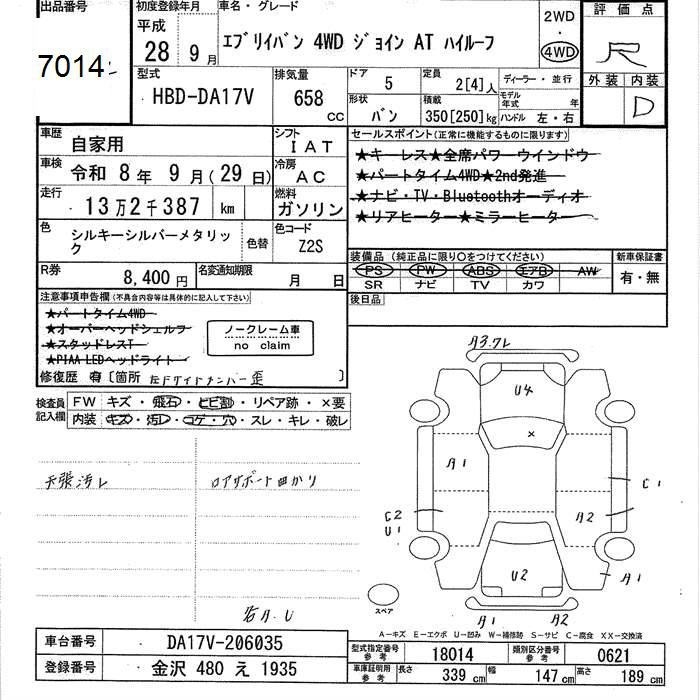 出品番号
7014
初度登録年月
平成
28年 9月
車名・グレード
エブリイバン 4WD ジョイン AT ハイルーフ
2WD
・
4WD
評価点
R
外装 内装
D
型式
HBD-DA17V
排気量
658
CC
ドア
5
定員
2[4]人
ディーラー・並行
形状
バン
積載
350[250]kg
モデル年式 年
ハンドル 左・右
車歴
自家用
シフト
IAT
車検
令和 8年 9月(29日)
冷房
AC
走行
13万2千387 km
燃料
ガソリン
色
シルキーシルバーメタリック
色替
色コード
Z2S
R券
8,400円
名変通知期限
月 日
セールスポイント(正常に機能するものに限ります)
★キーレス★全席パワーウインドウ
★パートタイム4WD★2nd発進
★ナビ・TV・Bluetoothオーディオ
★リアヒーター★ミラーヒーター
装備品(純正品に限り○をつけてください)
PS PW ABS エアB AW
SR ナビ TV カワ
新車保証書
有・無
後日品
注意事項申告欄(不具合内容等は具体的に記入して下さい)
★パートタイム4WD
★オーバーヘッドシェルフ
★スタッドレスT
★PIAA LEDヘッドライト
ノークレーム車
no claim
修復歴 有 [箇所 左Fサイドメンバー歪 ]
検査員記入欄
FW キズ・飛石・ヒビ割・リペア跡・×要
内装 キズ・汚レ・コゲ・穴・スレ・キレ・破レ
天張汚レ
ロアサポート曲がり
A3.ワレ
U4
×
A1
C1
C2
U1
A2
U2
A1
スペア
A1
A2
A-キズ E-エクボ U-凹み W-補修跡 S-サビ C-腐食 XX-交換済
車台番号
DA17V-206035
登録番号
金沢 480 え 1935
型式指定番号
参考
18014
類別区分番号
参考
0621
車庫証明用
参考
長さ 339 cm
幅 147 cm
高さ 189 cm